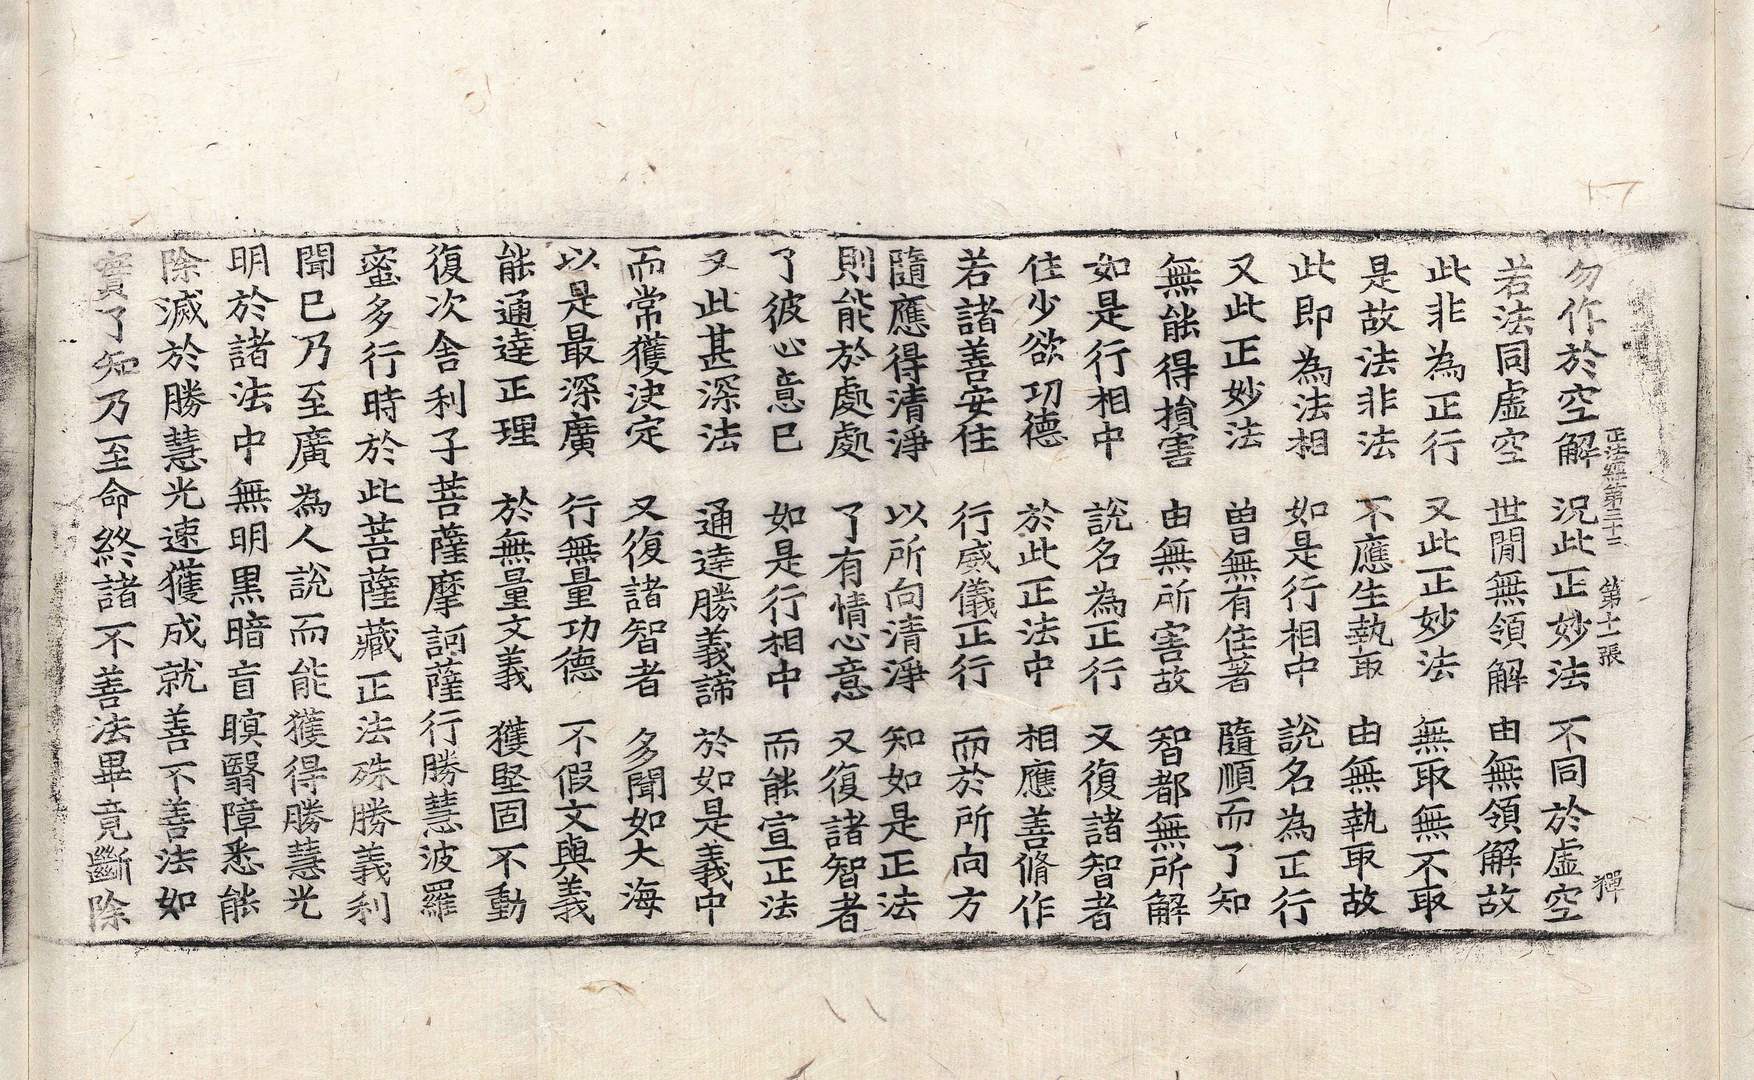 正法經第三十三 第十一張 獬
勿作於空解 況此正妙法 不同於虛空
若法同虛空 世間無領解 由無領解故
此非為正行 又此正妙法 無取無不取
是故法非法 不應生執取 由無執取故
此即為法相 如是行相中 說名為正行
又此正妙法 曾無有住著 隨順而了知
無能得損害 由無所害故 智都無所解
如是行相中 說名為正行 又復諸智者
住少欲功德 於此正法中 相應善脩作
若諸善安住 行威儀正行 而於所向方
隨應得清淨 以所向清淨 知如是正法
則能於處處 了有情心意 又復諸智者
了彼心意已 如是行相中 而能宣正法
又此甚深法 通達勝義諦 於如是義中
而常獲決定 又復諸智者 多聞如大海
以是最深廣 行無量功德 不假文與義
能通達正理 於無量文義 獲堅固不動
復次舍利子菩薩摩訶薩行勝慧波羅
蜜多行時於此菩薩藏正法殊勝義利
聞已乃至廣為人說而能獲得勝慧光
明於諸法中無明黑暗盲瞑翳障悉能
除滅於勝慧光速獲成就善不善法如
實了知乃至命終諸不善法畢竟斷除